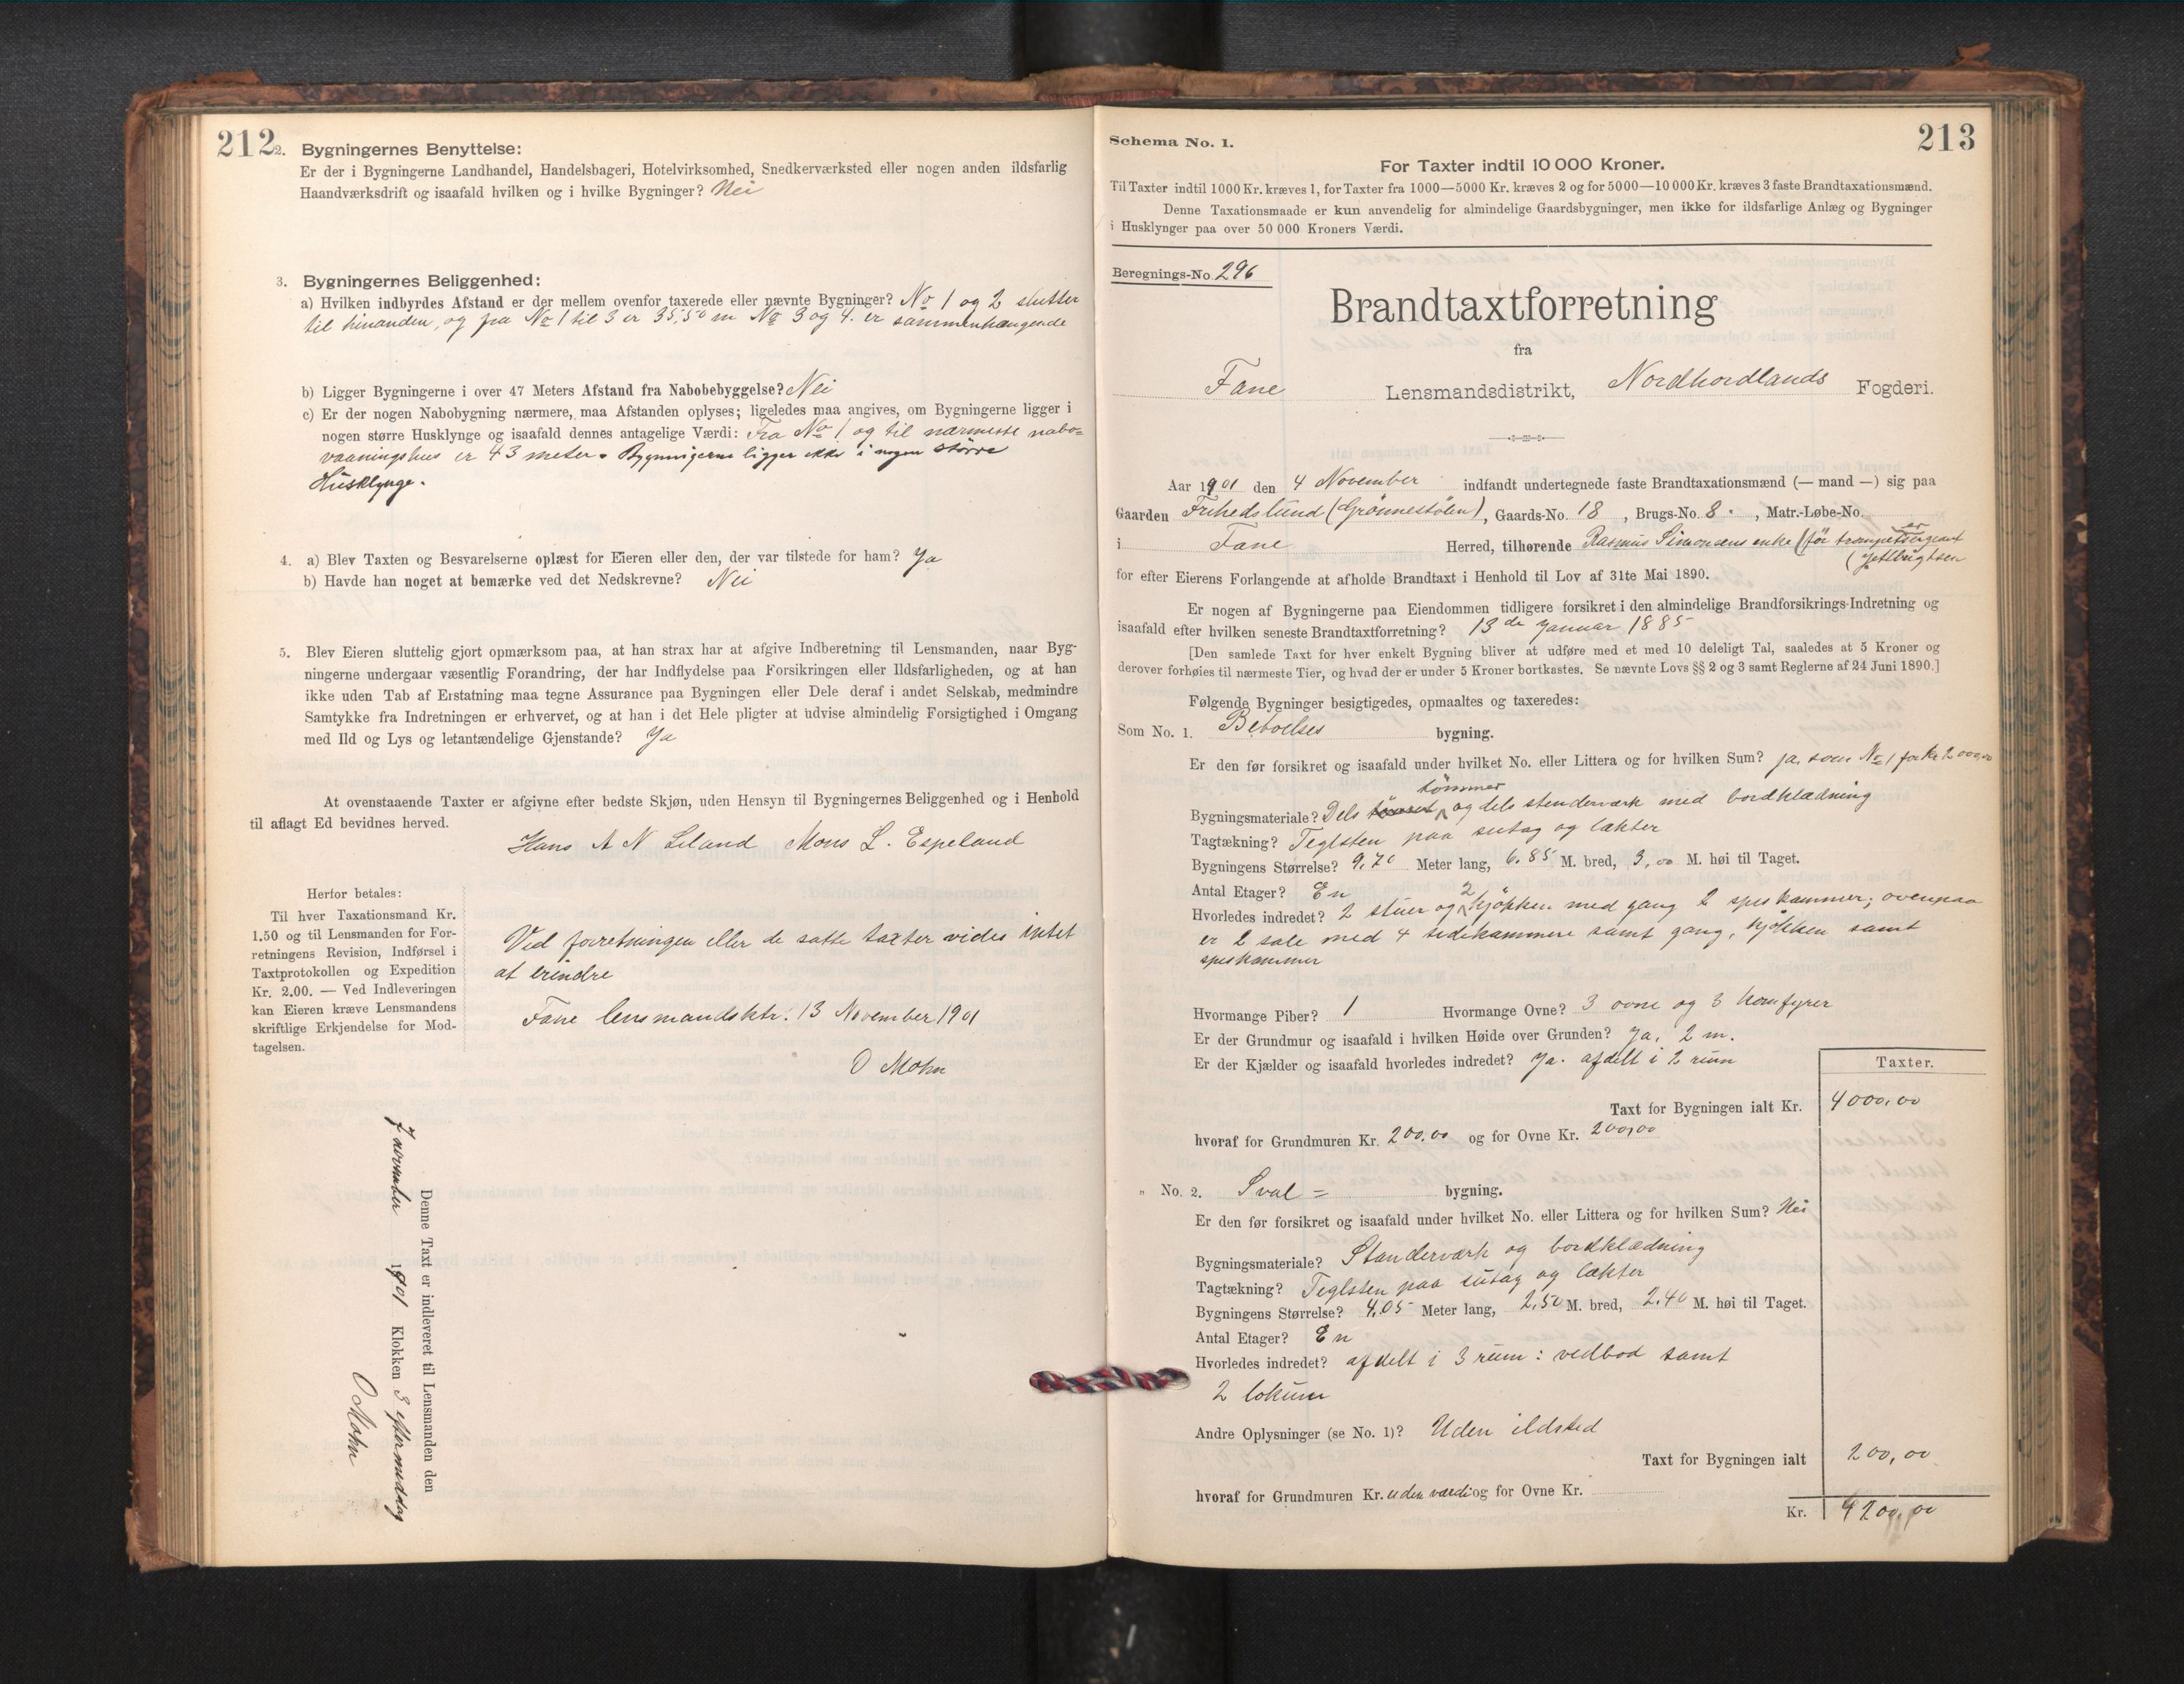 212
2. Bygningernes Benyttelse:
Er der i Bygningerne Landhandel, Handelsbageri, Hotelvirksomhed, Snedkerværksted eller nogen anden ildsfarlig
Haandværksdrift og isaafald hvilken og i hvilke Bygninger? Nei
3. Bygningernes Beliggenhed:
a) Hvilken indbyrdes Afstand er der mellem ovenfor taxerede eller nævnte Bygninger? No 1 og 2 slutter
til hinanden, og fra No 1 til 3 er 35,50 m No 3 og 4. er sammenhængende
b) Ligger Bygningerne i over 47 Meters Afstand fra Nabobebyggelse? Nei
c) Er der nogen Nabobygning nærmere, maa Afstanden oplyses; ligeledes maa angives, om Bygningerne ligger i
nogen større Husklynge og isaafald dennes antagelige Værdi: Fra No 1 og til nærmeste nabo=
vaaningshus er 43 meter. Bygningerne ligger ikke i nogen større
Husklynge.
4. a) Blev Taxten og Besvarelserne oplæst for Eieren eller den, der var tilstede for ham? Ja
b) Havde han noget at bemærke ved det Nedskrevne? Nei
5. Blev Eieren sluttelig gjort opmærksom paa, at han strax har at afgive Indberetning til Lensmanden, naar Byg-
ningerne undergaar væsentlig Forandring, der har Indflydelse paa Forsikringen eller Ildsfarligheden, og at han
ikke uden Tab af Erstatning maa tegne Assurance paa Bygningen eller Dele deraf i andet Selskab, medmindre
Samtykke fra Indretningen er erhvervet, og at han i det Hele pligter at udvise almindelig Forsigtighed i Omgang
med Ild og Lys og letantændelige Gjenstande? Ja
At ovenstaaende Taxter er afgivne efter bedste Skjøn, uden Hensyn til Bygningernes Beliggenhed og i Henhold
til aflagt Ed bevidnes herved.
Hans A N Liland Mons L. Espeland
Herfor betales:
Til hver Taxationsmand Kr.
1.50 og til Lensmanden for For-
retningens Revision, Indførsel i
Taxtprotokollen og Expedition
Kr. 2.00. — Ved Indleveringen
kan Eieren kræve Lensmandens
skriftlige Erkjendelse for Mod-
tagelsen.
Ved forretningen eller de satte taxter vides intet
at erindre
Fane lensmandsktr. 13 November 1901
O Mohn
Denne Taxt er indleveret til Lensmanden den
7 november 1901 Klokken 3 eftermiddag
O Mohn
213
Schema No. 1.
For Taxter indtil 10 000 Kroner.
Til Taxter indtil 1000 Kr. kræves 1, for Taxter fra 1000—5000 Kr. kræves 2 og for 5000—10 000 Kr. kræves 3 faste Brandtaxationsmænd.
Denne Taxationsmaade er kun anvendelig for almindelige Gaardsbygninger, men ikke for ildsfarlige Anlæg og Bygninger
i Husklynger paa over 50 000 Kroners Værdi.
Beregnings-No. 296
Brandtaxtforretning
fra
Fane Lensmandsdistrikt, Nordhordlands Fogderi.
Aar 1901 den 4 November indfandt undertegnede faste Brandtaxationsmænd (— mand —) sig paa
Gaarden Frihedslund (Grønnestølen), Gaards-No. 18, Brugs-No. 8., Matr.-Løbe-No.
i Fane Herred, tilhørende Rasmus Simonsens enke (før trompetersergeant
for efter Eierens Forlangende at afholde Brandtaxt i Henhold til Lov af 31te Mai 1890.
Er nogen af Bygningerne paa Eiendommen tidligere forsikret i den almindelige Brandforsikrings-Indretning og
isaafald efter hvilken seneste Brandtaxtforretning? 13de Januar 1885
[Den samlede Taxt for hver enkelt Bygning bliver at udføre med et med 10 deleligt Tal, saaledes at 5 Kroner og
derover forhøies til nærmeste Tier, og hvad der er under 5 Kroner bortkastes. Se nævnte Lovs §§ 2 og 3 samt Reglerne af 24 Juni 1890.]
Følgende Bygninger besigtigedes, opmaaltes og taxeredes:
Som No. 1. Beboelses bygning.
Er den før forsikret og isaafald under hvilket No. eller Littera og for hvilken Sum? ja, som No 1 for kr 2000,00
tømmer
Bygningsmateriale? Dels og dels stenderværk med bordklædning
Tagtækning? Teglsten paa sutag og lækter
Bygningens Størrelse? 9,70 Meter lang, 6,85 M. bred, 3,00 M. høi til Taget.
Antal Etager? En
Hvorledes indredet? 2 stuer og 2 kjøkken med gang 2 speskammer; ovenpaa
er 2 sale med 4 sidekammere samt gang, kjøkken samt
speskammer
Hvormange Piber? 1 Hvormange Ovne? 3 ovne og 3 komfyrer
Er der Grundmur og isaafald i hvilken Høide over Grunden? Ja, 2 m.
Er der Kjælder og isaafald hvorledes indredet? Ja. afdelt i 2 rum
Taxter.
Taxt for Bygningen ialt Kr. 4000,00
hvoraf for Grundmuren Kr. 200,00 og for Ovne Kr. 200,00
" No. 2. Sval= bygning.
Er den før forsikret og isaafald under hvilket No. eller Littera og for hvilken Sum? Nei
Bygningsmateriale? Standerværk og bordklædning
Tagtækning? Teglsten paa sutag og lækter
Bygningens Størrelse? 4,05 Meter lang, 2,50 M. bred, 2,40 M. høi til Taget.
Antal Etager? En
Hvorledes indredet? afdelt i 3 rum: vedbod samt
2 lokum
Andre Oplysninger (se No. 1)? Uden ildsted
Taxt for Bygningen ialt 200,00
hvoraf for Grundmuren Kr. uden værdi og for Ovne Kr.
Kr. 4200,00